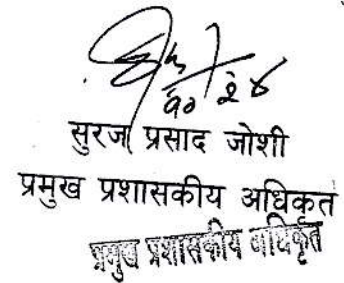 १०/२४
सुरज प्रसाद जोशी
प्रमुख प्रशासकीय अधिकृत
प्रमुख प्रशासकीय अधिकृत